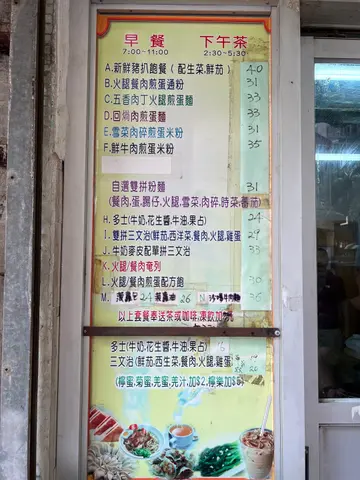 早餐 下午茶
7:00-11:00 2:30-5:30
A.新鮮豬扒飽餐(配生菜,鮮茄) 40
B.火腿餐肉煎蛋通粉 31
C.五香肉丁火腿煎蛋麵 33
D.回鍋肉煎蛋麵 33
E.雪菜肉碎煎蛋米粉 31
F.鮮牛肉煎蛋米粉 35
自選雙拼粉麵 31
(餐肉,蛋,腸仔,火腿,雪菜,肉碎,時菜,蕃茄)
H.多士(牛奶,花生醬,牛油,果占) 24
I.雙拼三文治(鮮茄,西洋菜,餐肉,火腿,雞蛋) 29
J.牛奶麥皮配單拼三文治 33
K.火腿/餐肉奄列
L.火腿/餐肉煎蛋配方飽 30
M. 24 26 N
以上套餐奉送茶或咖啡,凍飲加
多士(牛奶,花生醬,牛油,果占)
三文治(鮮茄,西生菜,餐肉,火腿,雞蛋)
(檸蜜,菊蜜,羌蜜,羌汁,加$2,檸樂加$5)